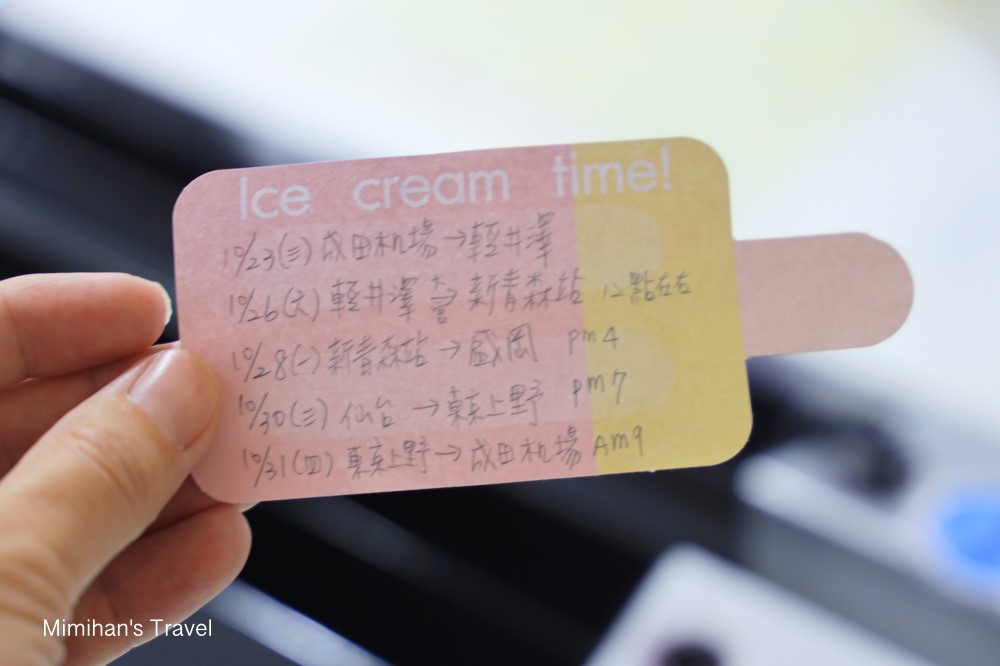 Ice cream time!
10/23(三) 成田机場→輕井澤
10/26(六) 輕井澤 大宮→ 新青森站 12點左右
10/28(一) 新青森站→盛岡 pm4
10/30(三) 仙台 →東京上野 pm7
10/31(四) 東京上野→成田机場 Am9
Mimihan's Travel